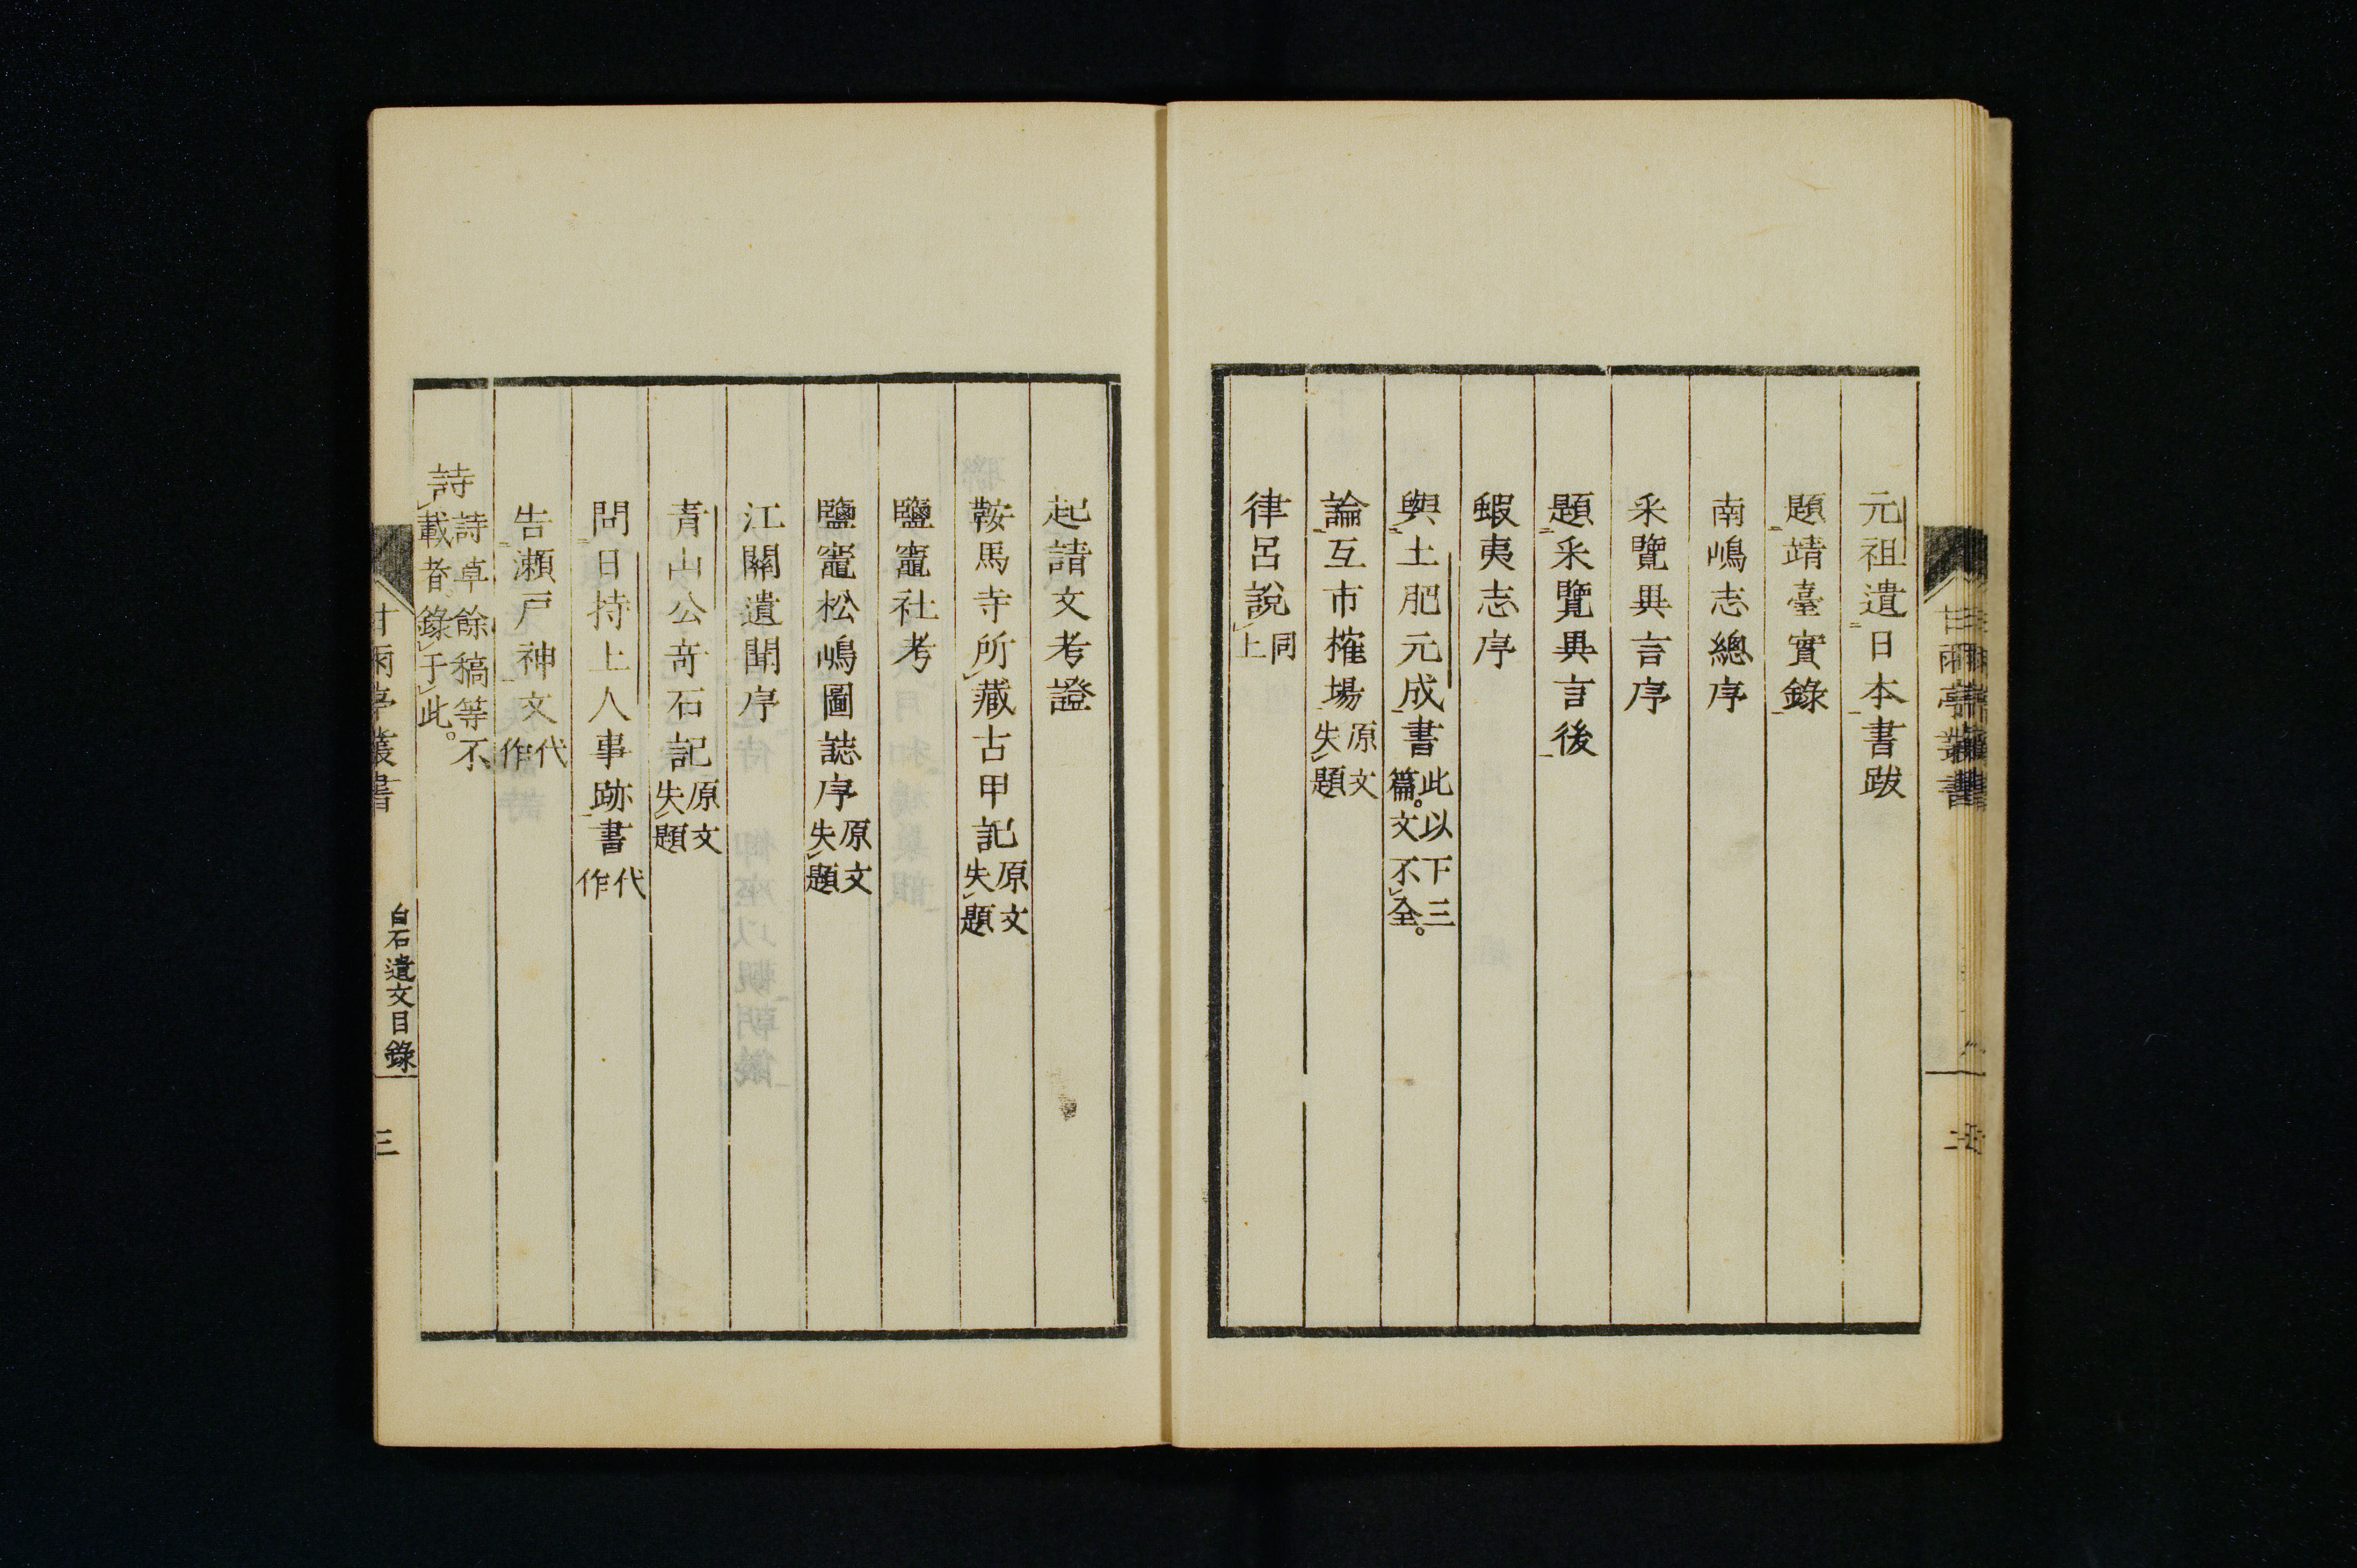 元祖遺日本書跋
題靖臺實錄
南嶋志總序
采覽異言序
題采覽異言後
蝦夷志序
與土肥元成書 此以下三篇。文不全。
論互市榷場 原文失題
律呂說 同上
起請文考證
鞍馬寺所藏古甲記 原文失題
鹽竈社考
鹽竈松嶋圖誌序 原文失題
江關遺聞序
青山公奇石記 原文失題
問日持上人事跡書 代作
告瀨戸神文 代作
詩 詩草餘稿等不載者錄于此。
甘雨亭叢書
白石遺文目錄
三